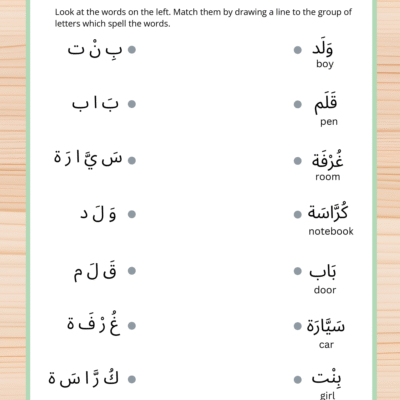 Look at the words on the left. Match them by drawing a line to the group of
letters which spell the words.
بِ نْ ت
وَلَد
boy
بَ ا ب
قَلَم
pen
سَ يَّ ا رَ ة
غُرْفَة
room
وَ لَ د
كُرَّاسَة
notebook
قَ لَ م
بَاب
door
غُ رْ فَ ة
سَيَّارَة
car
كُ رَّ ا سَ ة
بِنْت
girl